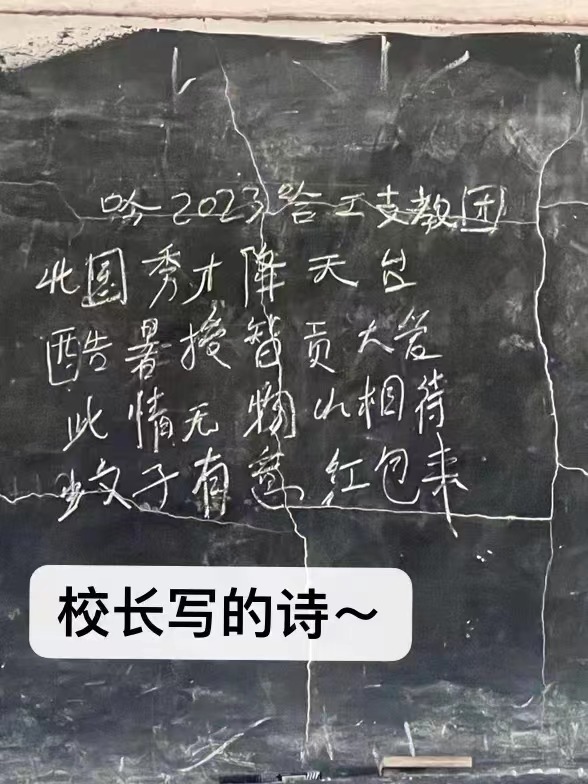 哈2023哈工支教团
北国秀才降天台
酷暑授智贡大爱
此情无物以相待
蚊子有意红包来
校长写的诗~